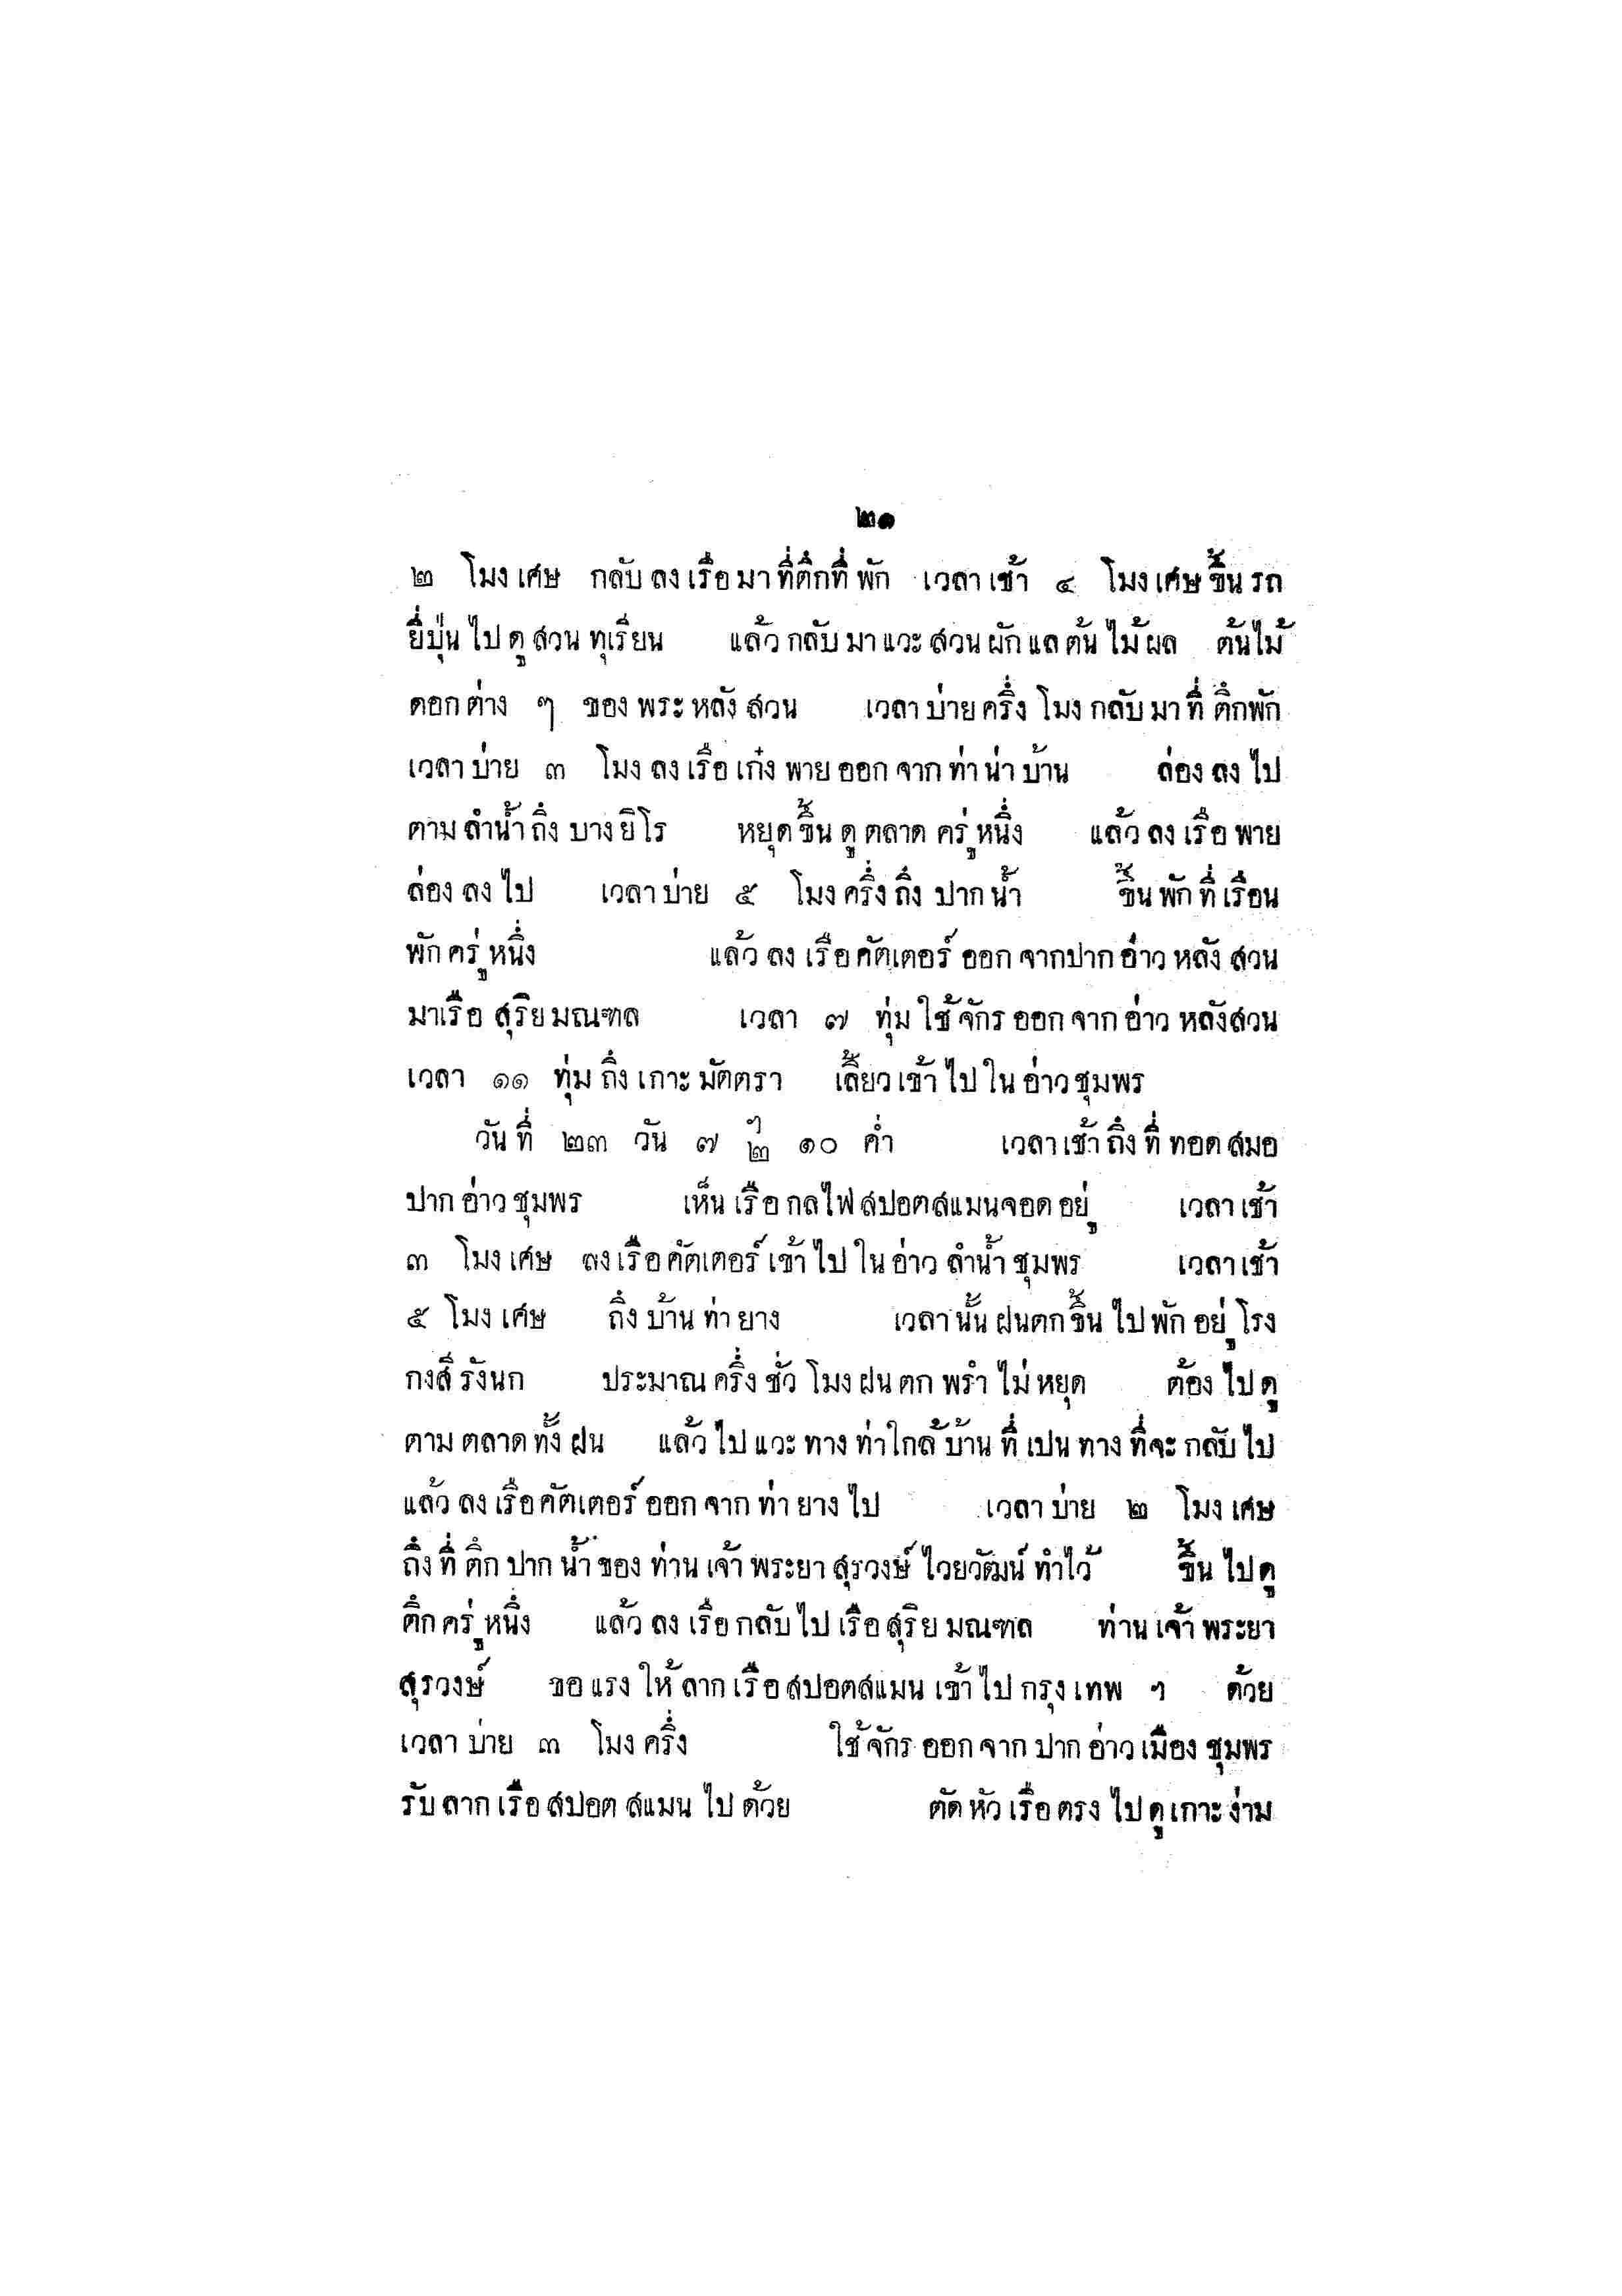 ๒๑
๒ โมงเศษ กลับลงเรือมาที่ตึกที่พัก เวลาเช้า ๔ โมงเศษขึ้นรถ
ยี่ปุ่นไปดูสวนทุเรียน แล้วกลับมาแวะสวนผักแลต้นไม้ผล ต้นไม้
ดอกต่าง ๆ ของพระหลังสวน เวลาบ่ายครึ่งโมงกลับมาที่ตึกพัก
เวลาบ่าย ๓ โมงลงเรือเก๋งพายออกจากท่าน่าบ้าน ล่องลงไป
ตามลำน้ำถึงบางยิโร หยุดขึ้นดูตลาดครู่หนึ่ง แล้วลงเรือพาย
ล่องลงไป เวลาบ่าย ๕ โมงครึ่งถึงปากน้ำ ขึ้นพักที่เรือน
พักครู่หนึ่ง แล้วลงเรือคัตเตอร์ออกจากปากอ่าวหลังสวน
มาเรือสุริยมณฑล เวลา ๗ ทุ่มใช้จักรออกจากอ่าวหลังสวน
เวลา ๑๑ ทุ่มถึงเกาะมัตตรา เลี้ยวเข้าไปในอ่าวชุมพร
วันที่ ๒๓ วัน ๗ ๆ ๒ ๑๐ ค่ำ เวลาเช้าถึงที่ทอดสมอ
ปากอ่าวชุมพร เห็นเรือกลไฟสปอตสแมนจอดอยู่ เวลาเช้า
๓ โมงเศษ ลงเรือคัตเตอร์เข้าไปในอ่าวลำน้ำชุมพร เวลาเช้า
๕ โมงเศษ ถึงบ้านท่ายาง เวลานั้นฝนตกขึ้นไปพักอยู่โรง
กงสีรังนก ประมาณครึ่งชั่วโมงฝนตกพรำไม่หยุด ต้องไปดู
ตามตลาดทั้งฝน แล้วไปแวะทางท่าใกล้บ้านที่เปนทางที่จะกลับไป
แล้วลงเรือคัตเตอร์ออกจากท่ายางไป เวลาบ่าย ๒ โมงเศษ
ถึงที่ตึกปากน้ำของท่านเจ้าพระยาสุรวงษ์ไวยวัฒน์ทำไว้ ขึ้นไปดู
ตึกครู่หนึ่ง แล้วลงเรือกลับไปเรือสุริยมณฑล ท่านเจ้าพระยา
สุรวงษ์ ขอแรงให้ลากเรือสปอตสแมนเข้าไปกรุงเทพ ฯ ด้วย
เวลาบ่าย ๓ โมงครึ่ง ใช้จักรออกจากปากอ่าวเมืองชุมพร
รับลากเรือสปอตสแมนไปด้วย ตัดหัวเรือตรงไปดูเกาะง่าม